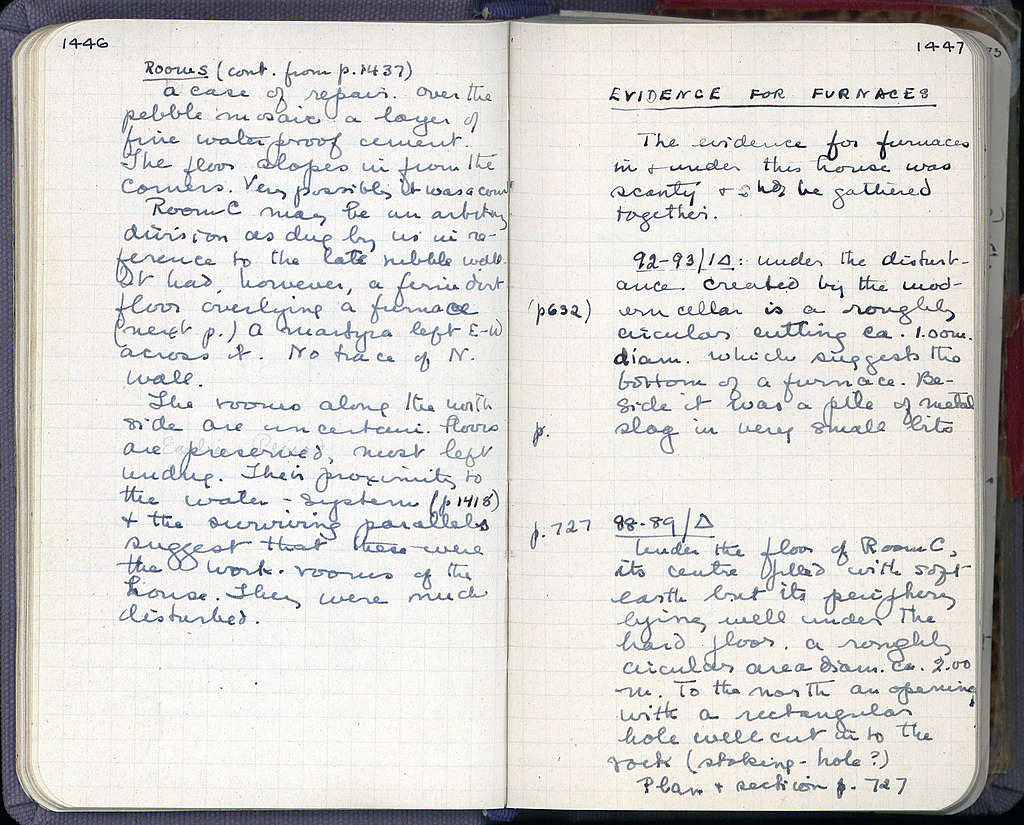 1446
Rooms (cont. from p. 1437)
a case of repair. Over the
pebble mosaic a layer of
fine waterproof cement.
The floor slopes in from the
corners. Very possibly it was a court
Room C may be an arbitrary
division as dug by us in re-
ference to the late rubble wall.
It had, however, a firm dirt
floor overlying a furnace
(next p.) A martyra left E-W
across it. No trace of N.
wall.
The rooms along the north
side are uncertain. Floors
are preserved, most left
undug. Their proximity to
the water-system (p 1418)
+ the surviving parallels
suggest that these were
the work-rooms of the
house. They were much
disturbed.
1447
EVIDENCE FOR FURNACES
The evidence for furnaces
in + under this house was
scanty + shd be gathered
together.
92-93/ΙΔ: under the disturb-
ance created by the mod-
(p632) ern cellar is a roughly
circular cutting ca. 1.00m.
diam. which suggests the
bottom of a furnace. Be-
side it was a pile of metal
p. slag in very small bits
p. 727 88-89/Δ
Under the floor of Room C,
its centre filled with soft
earth but its periphery
lying well under the
hard floor, a roughly
circular area diam. ca. 2.00
m. To the north an opening
with a rectangular
hole well cut into the
rock (stoking-hole?)
Plan + section p. 727